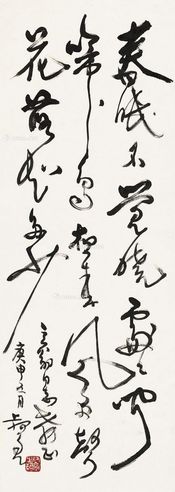 春眠不觉晓处々闻
啼鸟夜来风雨声
花落知多少
庚申